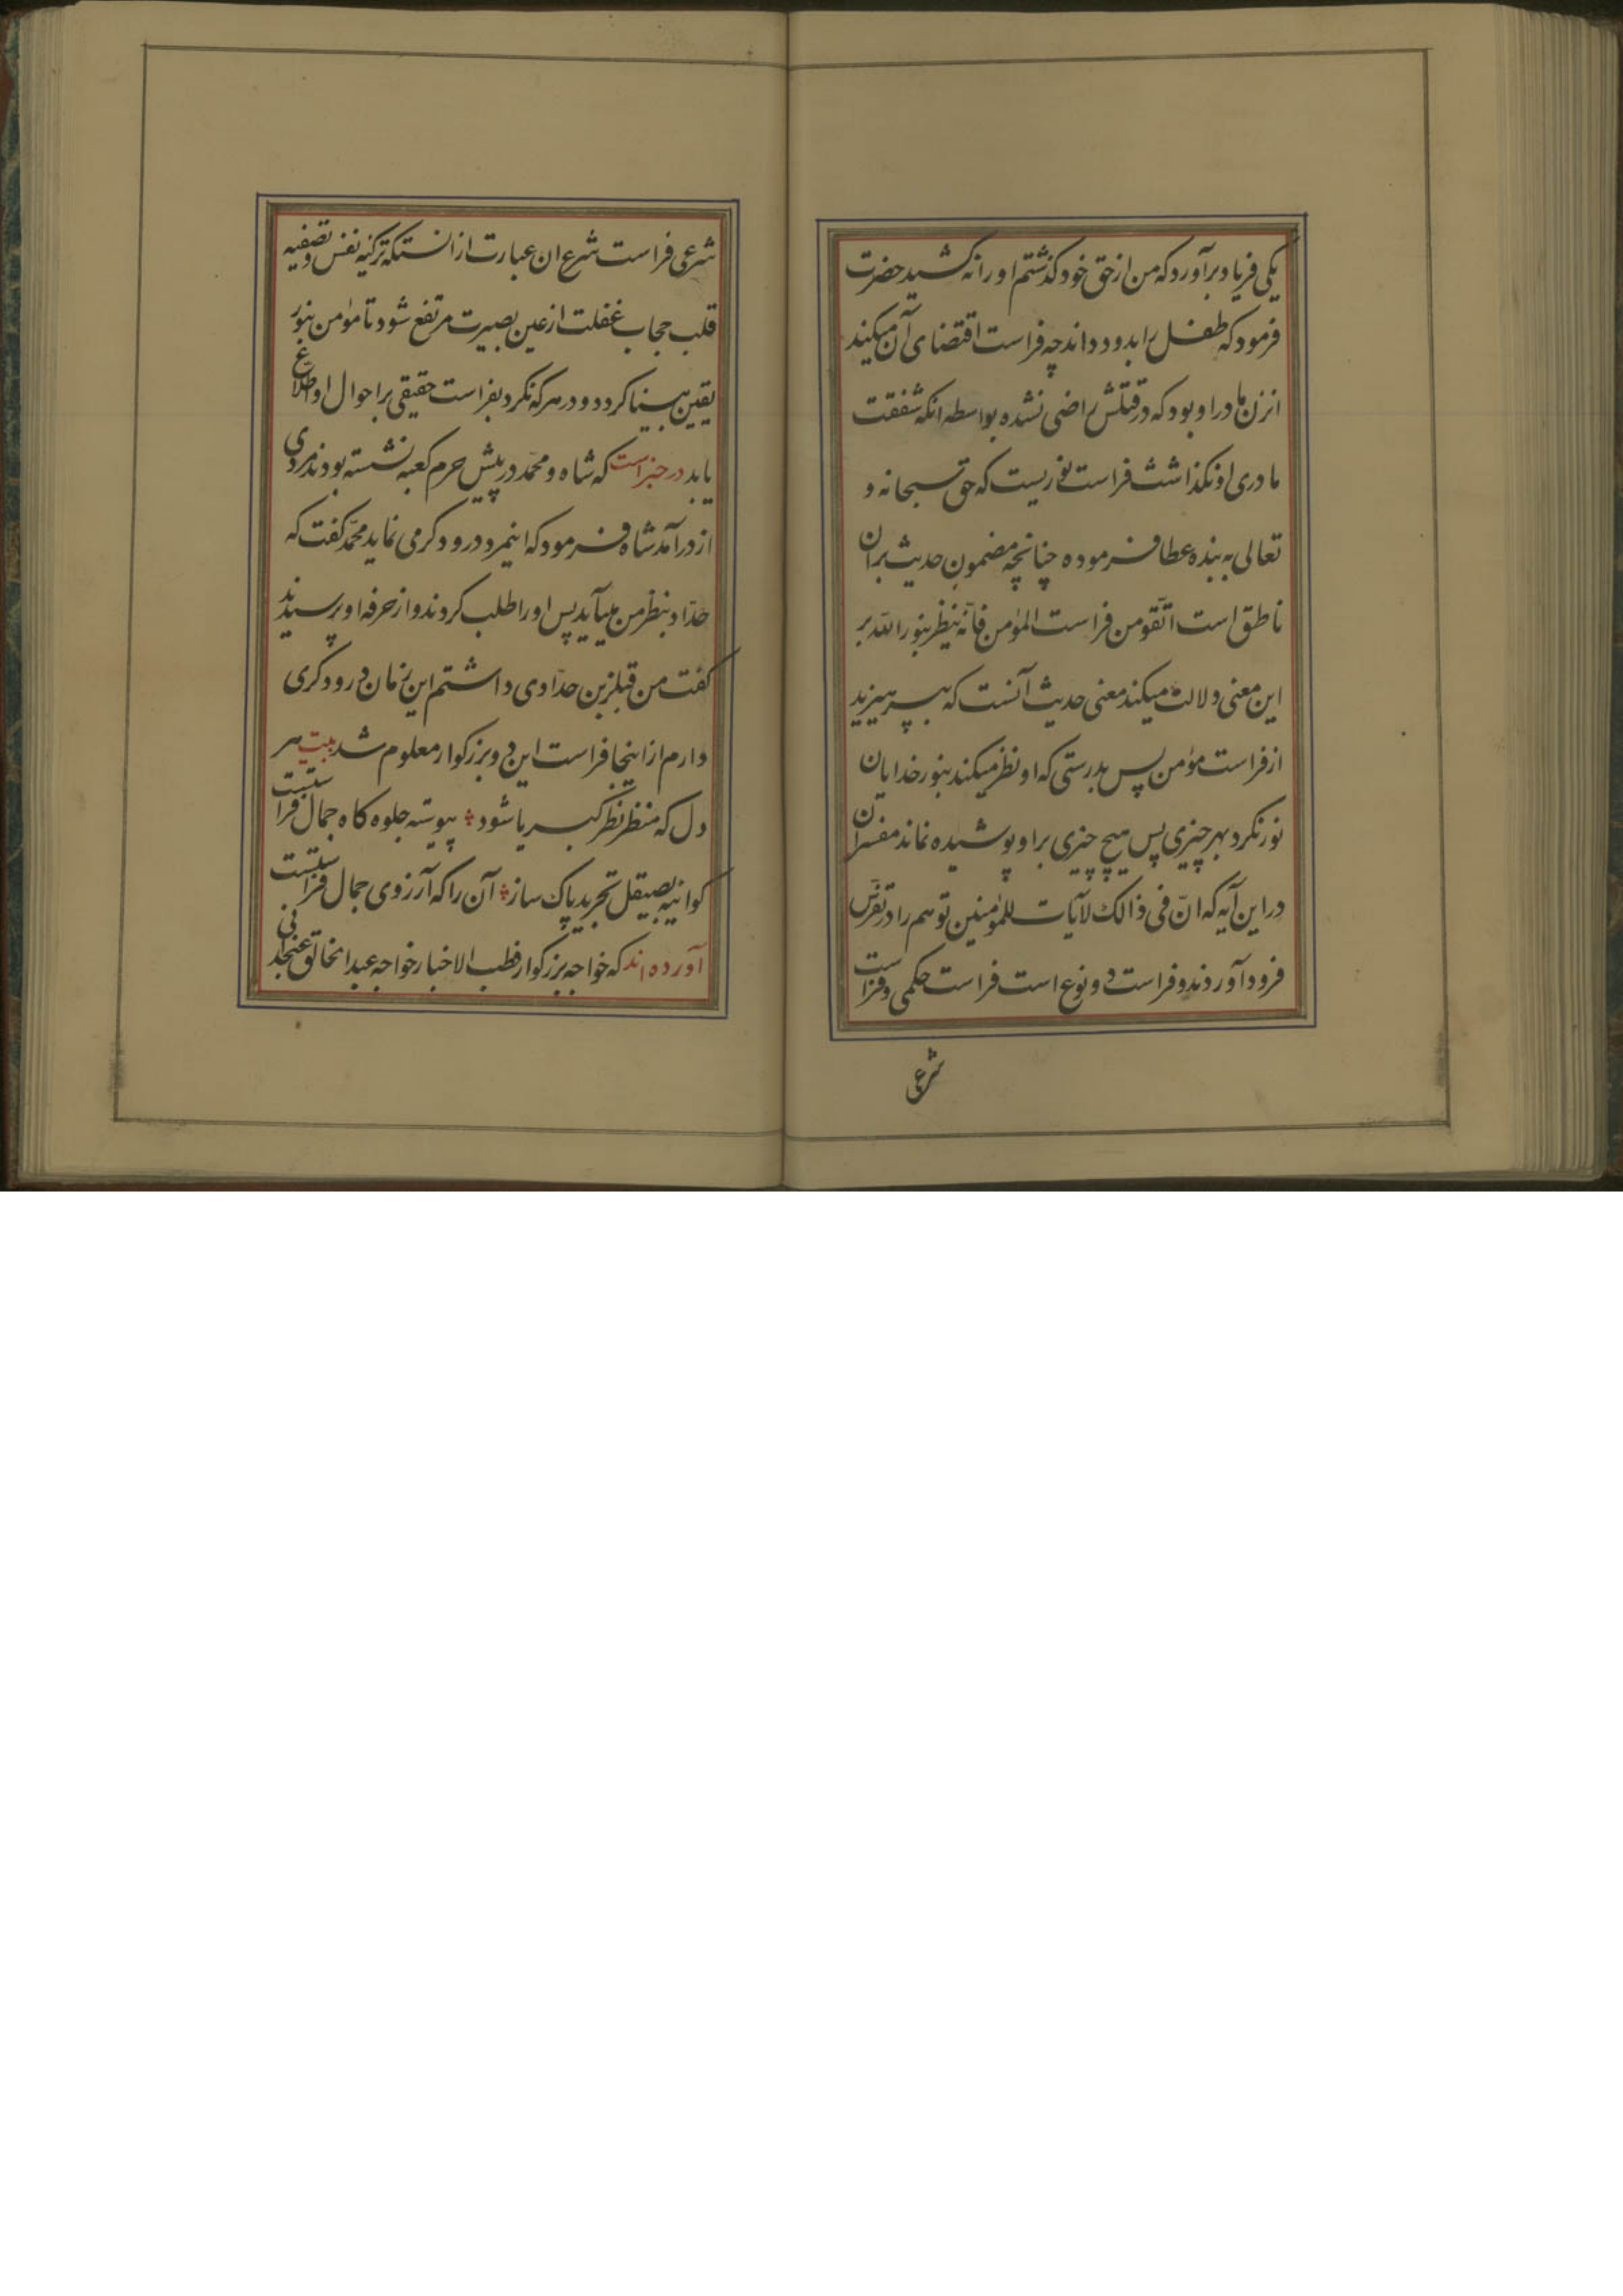 یکی فریاد برآورد که من از حق خود گذشتم او را نه کشید حضرت
فرمود که طفل را بدو داند چه فراست اقتضای آن میکند
انزن مادر او بود که در قتلش راضی نشده بواسطه انکه شفقت
مادری او نکذاشت فراست نوریست که حق سبحانه و
تعالی به بنده عطا فرموده چنانچه مضمون حدیث بران
ناطق است اتّقو من فراست المؤمن فانّه ینظر بنور اللّه بر
این معنی دلالت میکند معنی حدیث آنست که بپرهیزید
از فراست مؤمن پس بدرستی که او نظر میکند بنور خدا یان
نور نکرد بهر چیزی پس هیچ چیزی بر او پوشیده نماند مفسران
در این آیه که انّ فی ذالک لآیات للمؤمنین توسم را در تفرّس
فرود آوردند و فراست دو نوع است فراست حکمی و فراست
شرعی
شرعی فراست شرع ان عبارت از انستکه تزکیه نفس و تصفیه
قلب حجاب غفلت از عین بصیرت مرتفع شود تا مؤمن بنور
یقین بینا کردد و در هر که نکرد بفراست حقیقی بر احوال او اطلاع
یابد در خبر است که شاه و محمّد در پیش حرم کعبه نشسته بودند مردی
از در آمد شاه فرمود که اینمرد درودکر می نماید محمّد کفت که
حدّاد بنظر من میآید پس او را طلب کردند و از حرفه او پرسیدند
کفت من قبلزین حدّادی داشتم این زمان درودکری
دارم از اینجا فراست این دو بزرکوار معلوم شد بیت هر
دل که منظر نظر کبریا شود پیوسته جلوه کاه جمال فراستست
کوانیه بصیقل تجرید پاک ساز آن را که آرزوی جمال فراستست
آورده اند که خواجه بزرکوار قطب الاخیار خواجه عبدالخالق غنجدانی